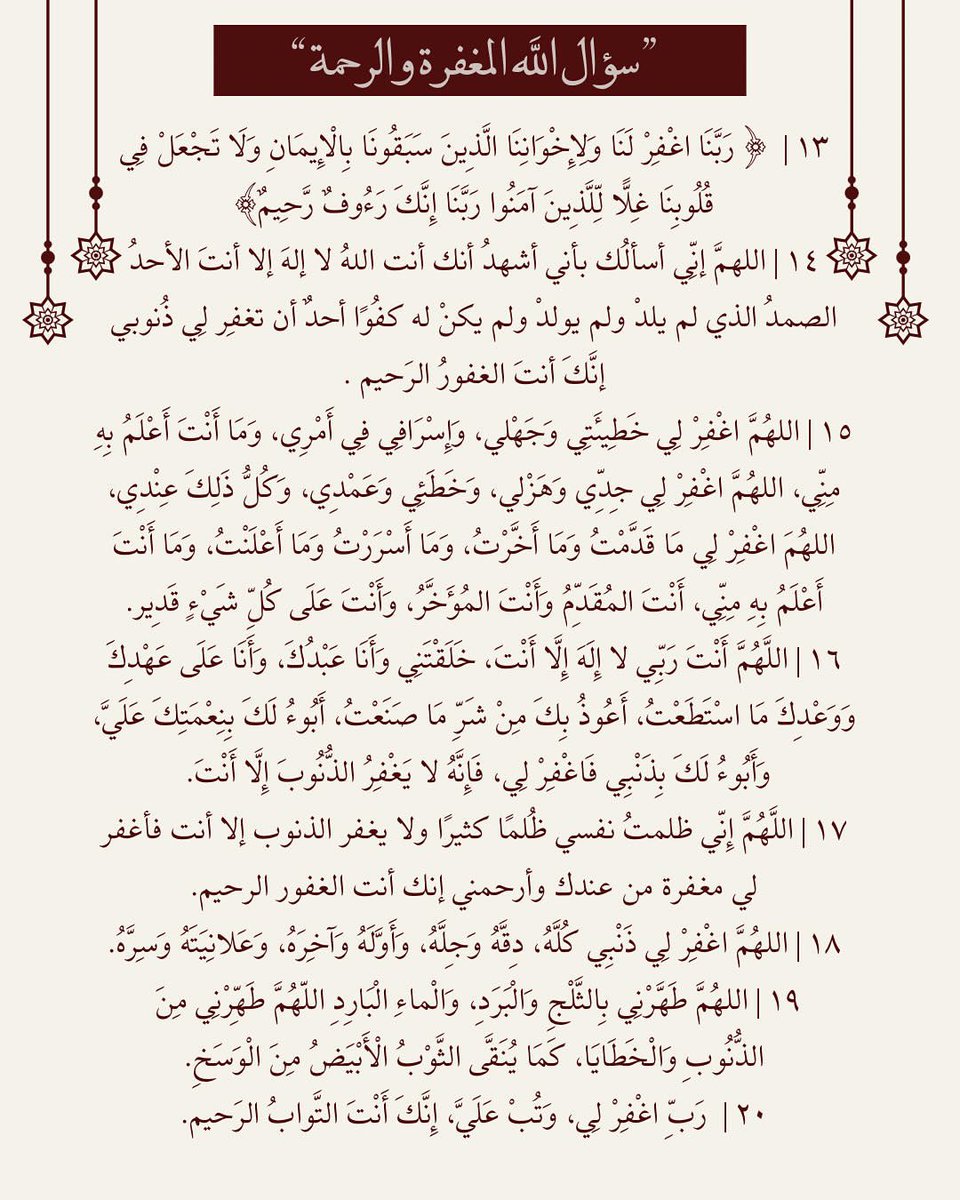 ”سؤال الله المغفرة والرحمة“
١٣ | ﴿ رَبَّنَا اغْفِرْ لَنَا وَلِإِخْوَانِنَا الَّذِينَ سَبَقُونَا بِالْإِيمَانِ وَلَا تَجْعَلْ فِي
قُلُوبِنَا غِلًّا لِّلَّذِينَ آمَنُوا رَبَّنَا إِنَّكَ رَءُوفٌ رَّحِيمٌ﴾
١٤ | اللهمَّ إنّي أسألُك بأني أشهدُ أنك أنت اللهُ لا إلهَ إلا أنتَ الأحدُ
الصمدُ الذي لم يلدْ ولم يولدْ ولم يكنْ له كفُوًا أحدٌ أن تغفِر لِي ذُنوبي
إنَّكَ أنتَ الغفورُ الرَحيم .
١٥ | اللهُمَّ اغْفِرْ لِي خَطِيئَتِي وَجَهْلي، وَإِسْرَافِي فِي أَمْرِي، وَمَا أَنْتَ أَعْلَمُ بِهِ
مِنِّي، اللهُمَّ اغْفِرْ لِي جِدِّي وَهَزْلي، وَخَطَئِي وَعَمْدِي، وَكُلُّ ذَلِكَ عِنْدِي،
اللهُمَ اغْفِرْ لِي مَا قَدَّمْتُ وَمَا أَخَّرْتُ، وَمَا أَسْرَرْتُ وَمَا أَعْلَنْتُ، وَمَا أَنْتَ
أَعْلَمُ بِهِ مِنِّي، أَنْتَ المُقَدِّمُ وَأَنْتَ المُؤَخَّرُ، وَأَنْتَ عَلَى كُلِّ شَيْءٍ قَدِير.
١٦ | اللَّهُمَّ أَنْتَ رَبِّي لا إِلَهَ إِلَّا أَنْتَ، خَلَقْتَنِي وَأَنَا عَبْدُكَ، وَأَنَا عَلَى عَهْدِكَ
وَوَعْدِكَ مَا اسْتَطَعْتُ، أَعُوذُ بِكَ مِنْ شَرِّ مَا صَنَعْتُ، أَبُوءُ لَكَ بِنِعْمَتِكَ عَلَيَّ،
وَأَبُوءُ لَكَ بِذَنْبِي فَاغْفِرْ لِي، فَإِنَّهُ لا يَغْفِرُ الذُّنُوبَ إِلَّا أَنْتَ.
١٧ | اللَّهُمَّ إِنّي ظلمتُ نفسي ظُلمًا كثيرًا ولا يغفر الذنوب إلا أنت فأغفر
لي مغفرة من عندك وأرحمني إنك أنت الغفور الرحيم.
١٨ | اللهُمَّ اغْفِرْ لِي ذَنْبِي كُلَّهُ، دِقَّهُ وَجِلَّهُ، وَأَوَّلَهُ وَآخِرَهُ، وَعَلانِيَتَهُ وَسِرَّهُ.
١٩ | اللهُمَّ طَهَّرْنِي بِالثَّلْجِ وَالْبَرَدِ، وَالْماءِ الْبَارِدِ اللّهُمَّ طَهِّرْنِي مِنَ
الذُّنُوبِ وَالْخَطَايَا، كَمَا يُنَقَّى الثَّوْبُ الْأَبْيَضُ مِنَ الْوَسَخِ.
٢٠ | رَبِّ اغْفِرْ لِي، وَتُبْ عَلَيَّ، إِنَّكَ أَنْتَ التَّوابُ الرَحيم.